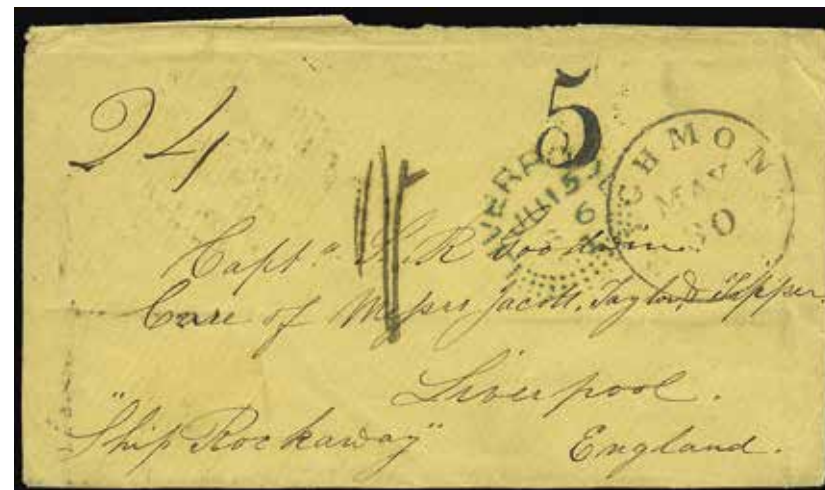 24
5
CHMON
MAY
30
JU15
6
Captn S. R Goodwin.
Care of Messrs Jacott, Taylor & Tipper.
Liverpool.
"Ship Rockaway"
England.